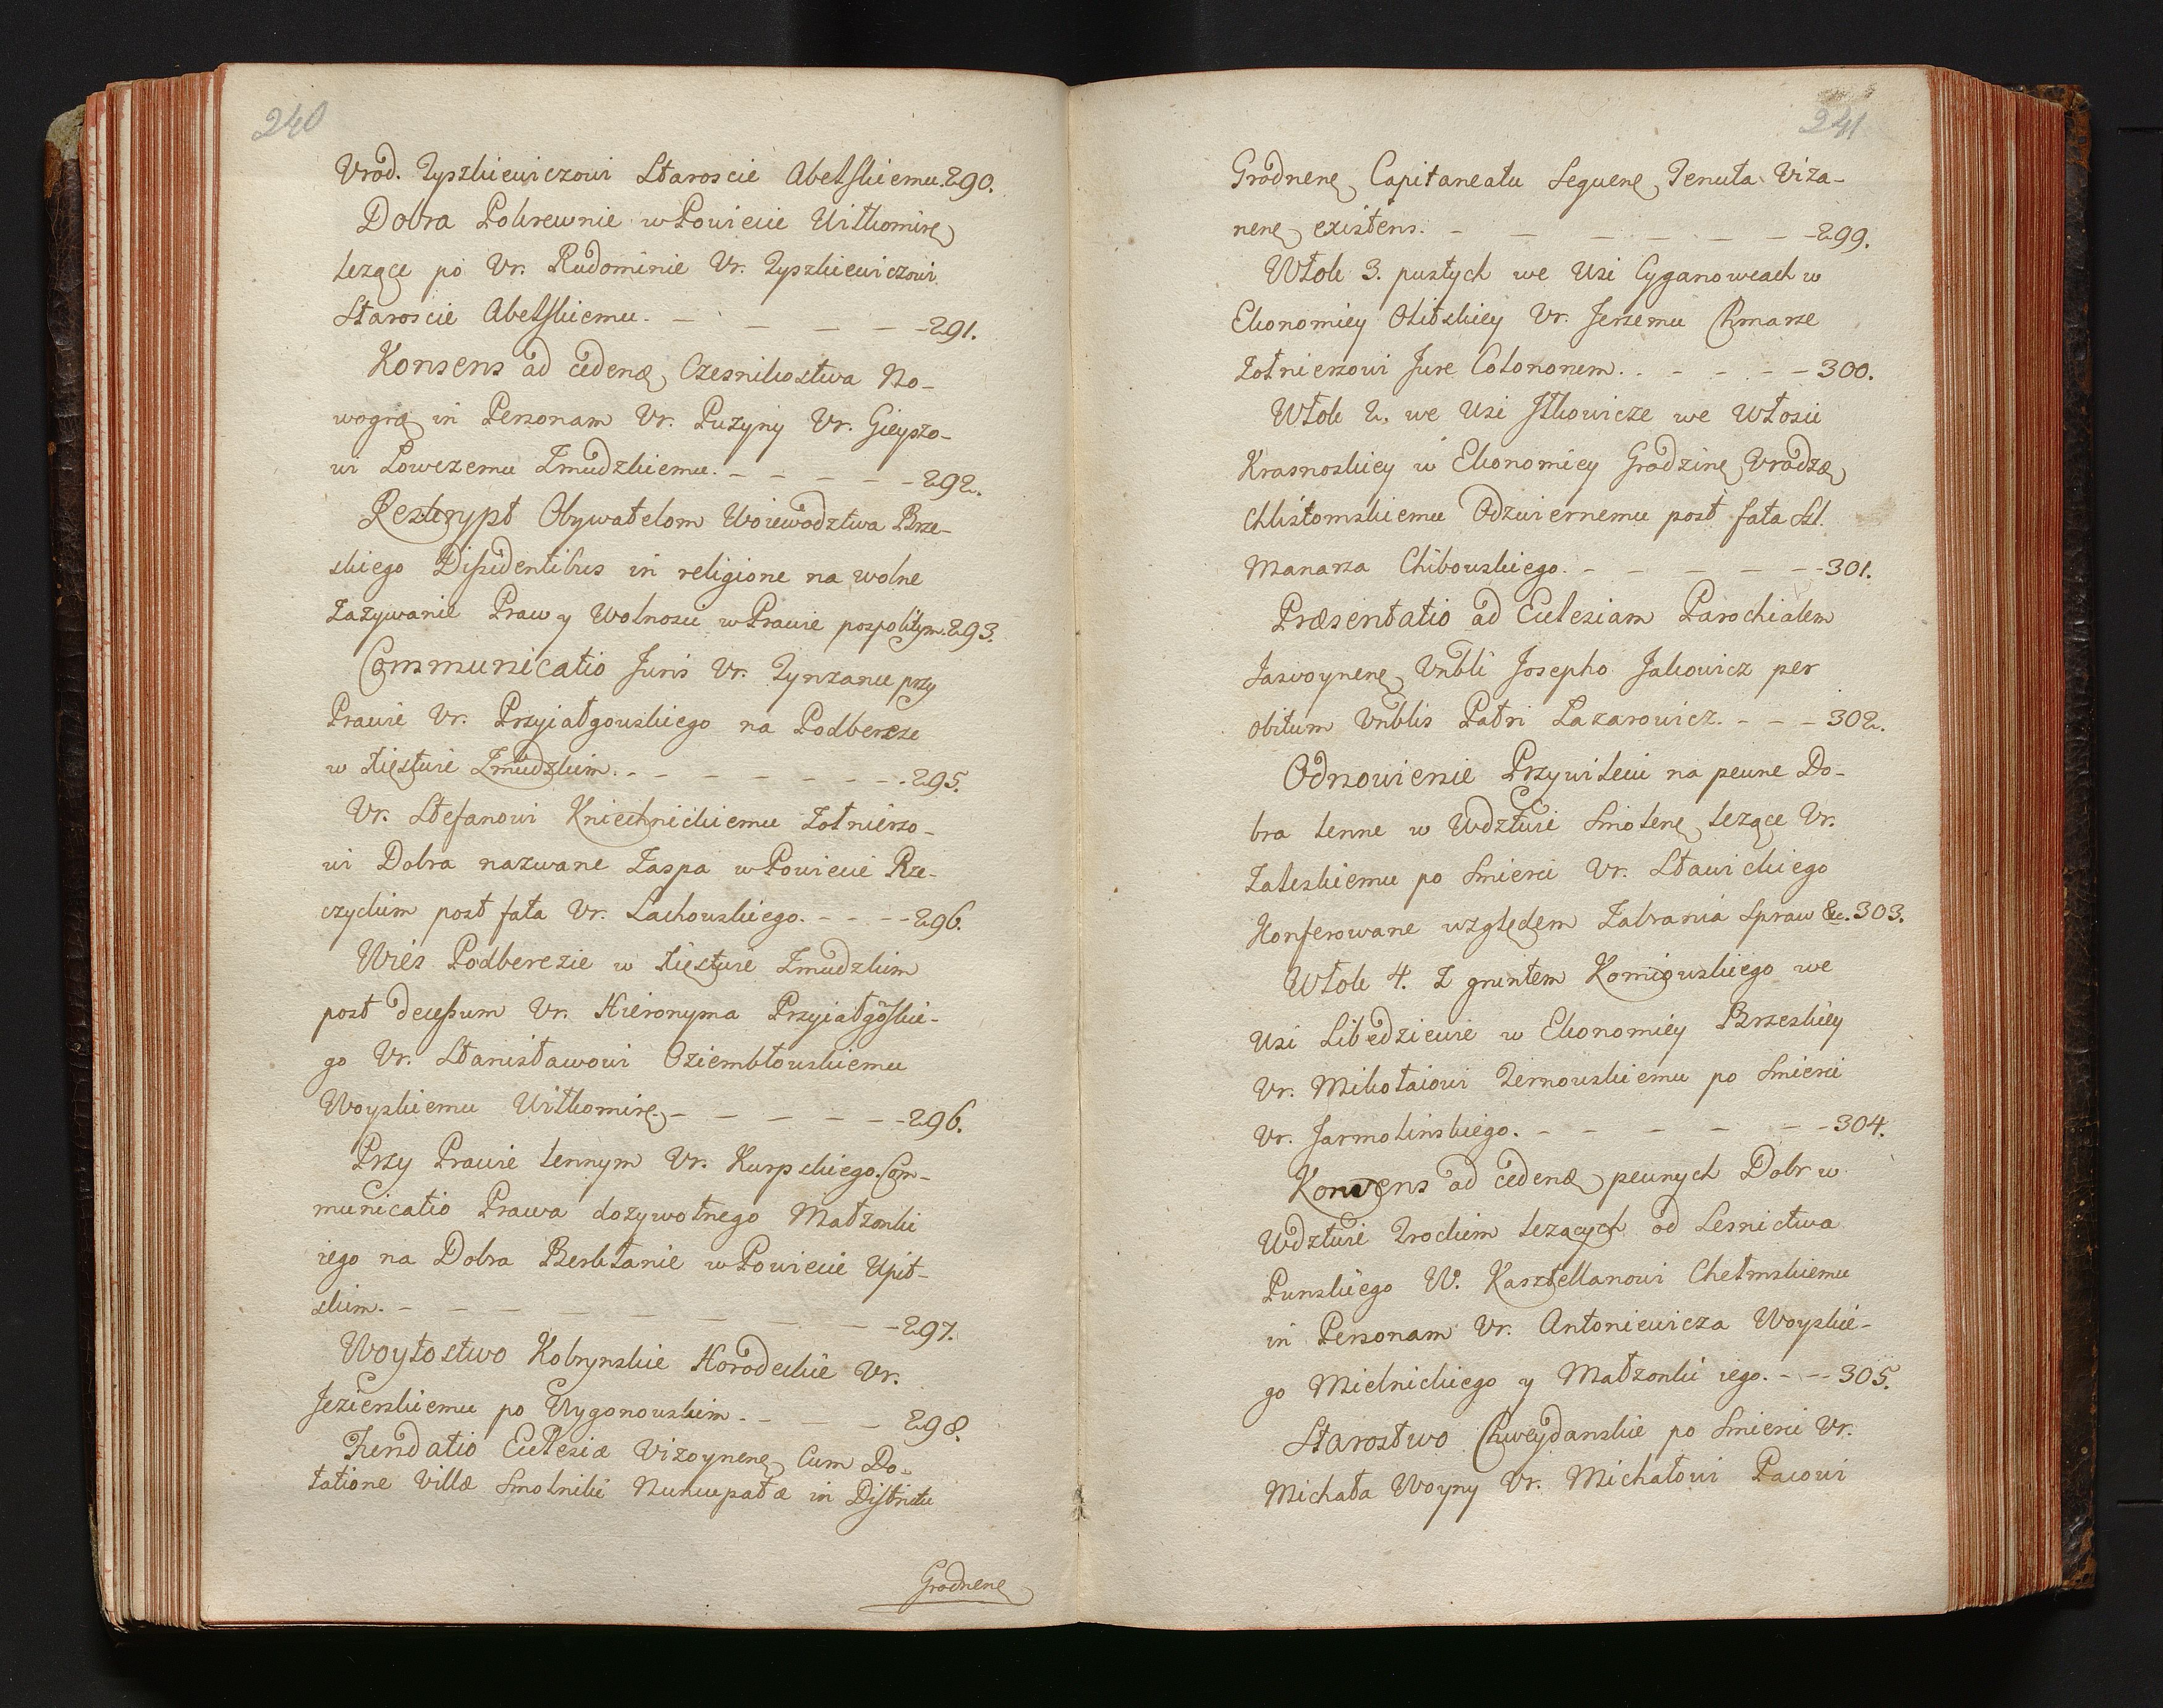 240
Urod. Tyszkiewiczowi Staroscie Abelskiemu. 290.
Dobra Pokrewnie w Powiecie Wiłkomire
lezące po Ur. Rudominie Ur. Tyszkiewiczowi
Staroscie Abelskiemu. - - - - - 291.
Konsens ad cedendæ Czesnikostwa No-
wogræ in Personam Ur. Puzyny Ur. Gieyszo-
wi Łowczemu Zmudzkiemu. - - - - - 292.
Reskrypt Obywatelom Woiewodztwa Brze-
skiego Dissidentibus in religione na wolne
Zazywanie Praw y Wolnosci w Prawie pospolitym. 293.
Communicatio Juris Ur. Tynzauu przy
Prawie Ur. Przyiałgowskiego na Podbereze
w Xięstwie Zmudzkim. - - - - - - 295.
Ur. Stefanowi Kniechnickiemu Zołnierzo-
wi Dobra nazwane Zaspa w Powiecie Rze-
czyckim post fata Ur. Lachowskiego. - - - - 296.
Wieś Podberezie w Xięstwie Zmudzkim
post decessum Ur. Hieronyma Przyiałgoskie-
go Ur. Stanisławowi Oziembłowskiemu
Woyskiemu Wiłkomire - - - - - 296.
Przy Prawie lennym Ur. Kurpskiego. Com-
municatio Prawa dozywotnego Małzonki
iego na Dobra Berklanie w Powiecie Upit-
skim. - - - - - - - 297.
Woytostwo Kobrynskie Horodeckie Ur.
Jezierskiemu po Wygonowskim. - - - 298.
Fundatio Eccleziæ Vizoynene Cum Do-
tatione Villæ Smolniki Nuncupatæ in Districtu
Grodnene
241
Grodnene Capitaneatu Seguene Tenuta Viza-
nene existens. - - - - - - 299.
Włok 3. pustych we Wsi Cyganowcach w
Ekonomiey Olitskiey Ur. Jerzemu Chmarze
Zołnierzowi Jure Colonorem. . - - - - 300.
Włok 2. we Wsi Jtkowicze we Włosci
Krasnoskiey w Ekonomiey Grodzine Urodzæ
Chlistomskiemu Odzwiernemu post fata Szl.
Manarza Chibowskiego. - - - - - 301.
Præsentatio ad Ecclesiam Parochialem
Jaswoynene Vnbli Josepho Jakowicz per
obitum Vnblis Patri Lazarowicz. - - - 302.
Odnowienie Przywileiu na pewne Do-
bra lenne w Wdztwie Smolene lezące Ur.
Zaleskiemu po Smierci Ur. Sławickiego
Konferowane względem Zabrania Spraw &c. 303.
Włok 4. z gruntem Komiowskiego we
Wsi Libedziewie w Ekonomiey Brzeskiey
Ur. Mikołaiowi Ternowskiemu po Smierci
Ur. Jarmolinskiego. - - - - - - 304.
Konsens ad cedendæ pewnych Dobr w
Wdztwie Trockim lezących od Lesnictwa
Punskiego W. Kasztellanowi Chełmskiemu
in Personam Ur. Antoniewicza Woyskie-
go Mielnickiego y Małzonki iego. - - - 305.
Starostwo Chweydanskie po Smierci Ur.
Michała Woyny Ur. Michałowi Pacowi